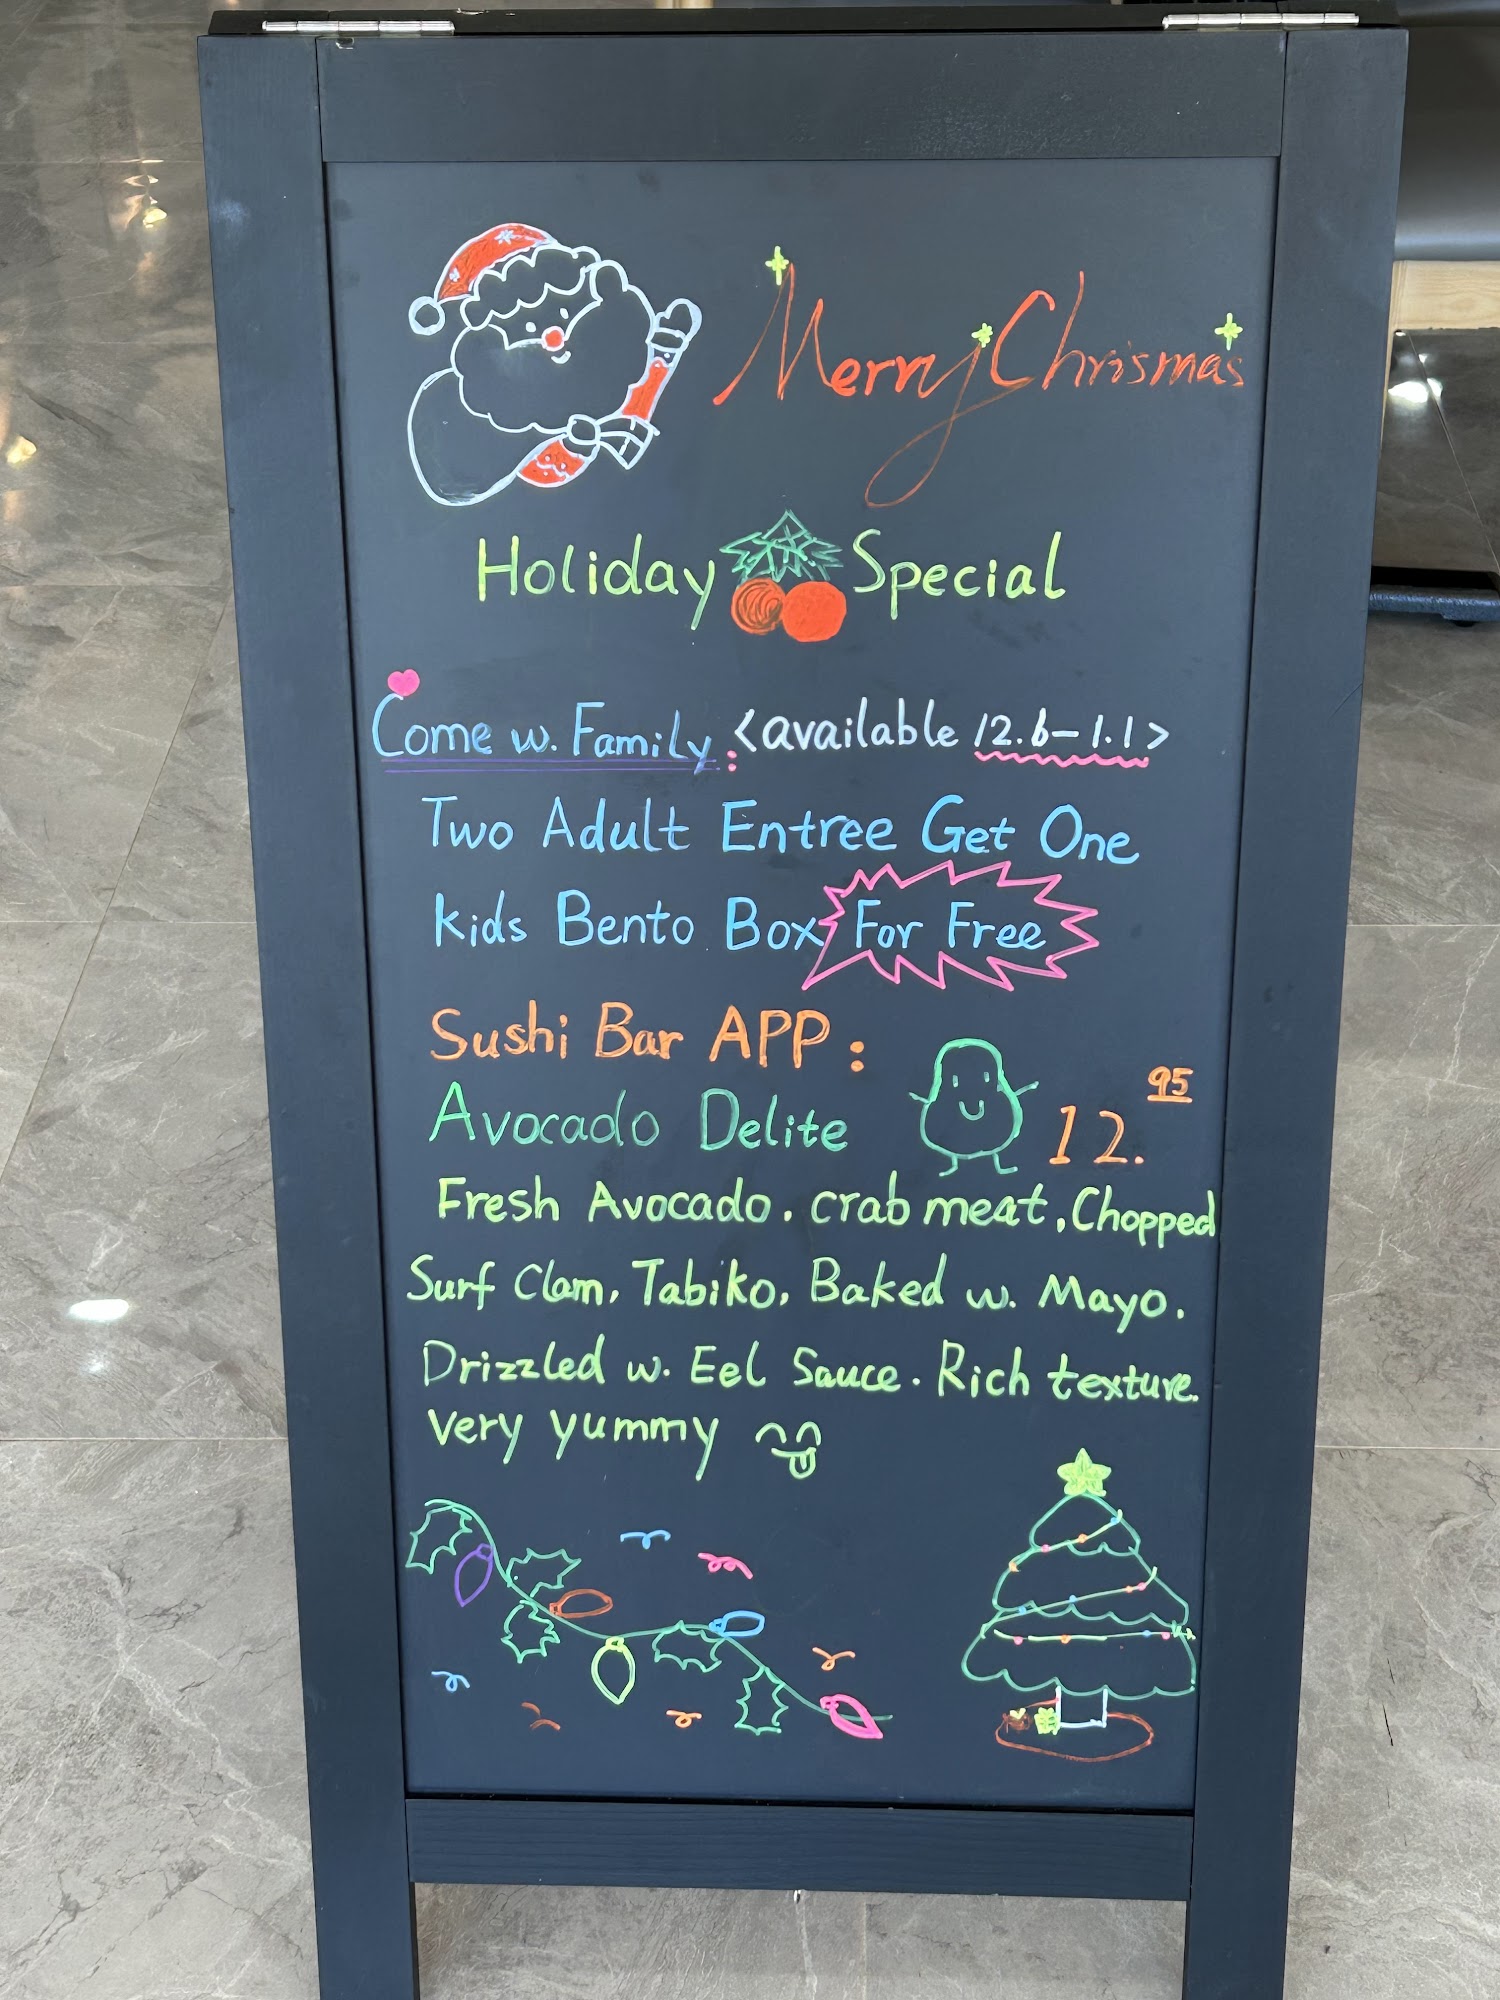 Merry Chrismas
Holiday Special
Come w. Family: <available 12.6-1.1>
Two Adult Entree Get One
kids Bento Box For Free
Sushi Bar APP:
Avocado Delite 12.95
Fresh Avocado. crab meat, Chopped
Surf Clam, Tabiko, Baked w. Mayo.
Drizzled w. Eel Sauce. Rich texture.
very yummy